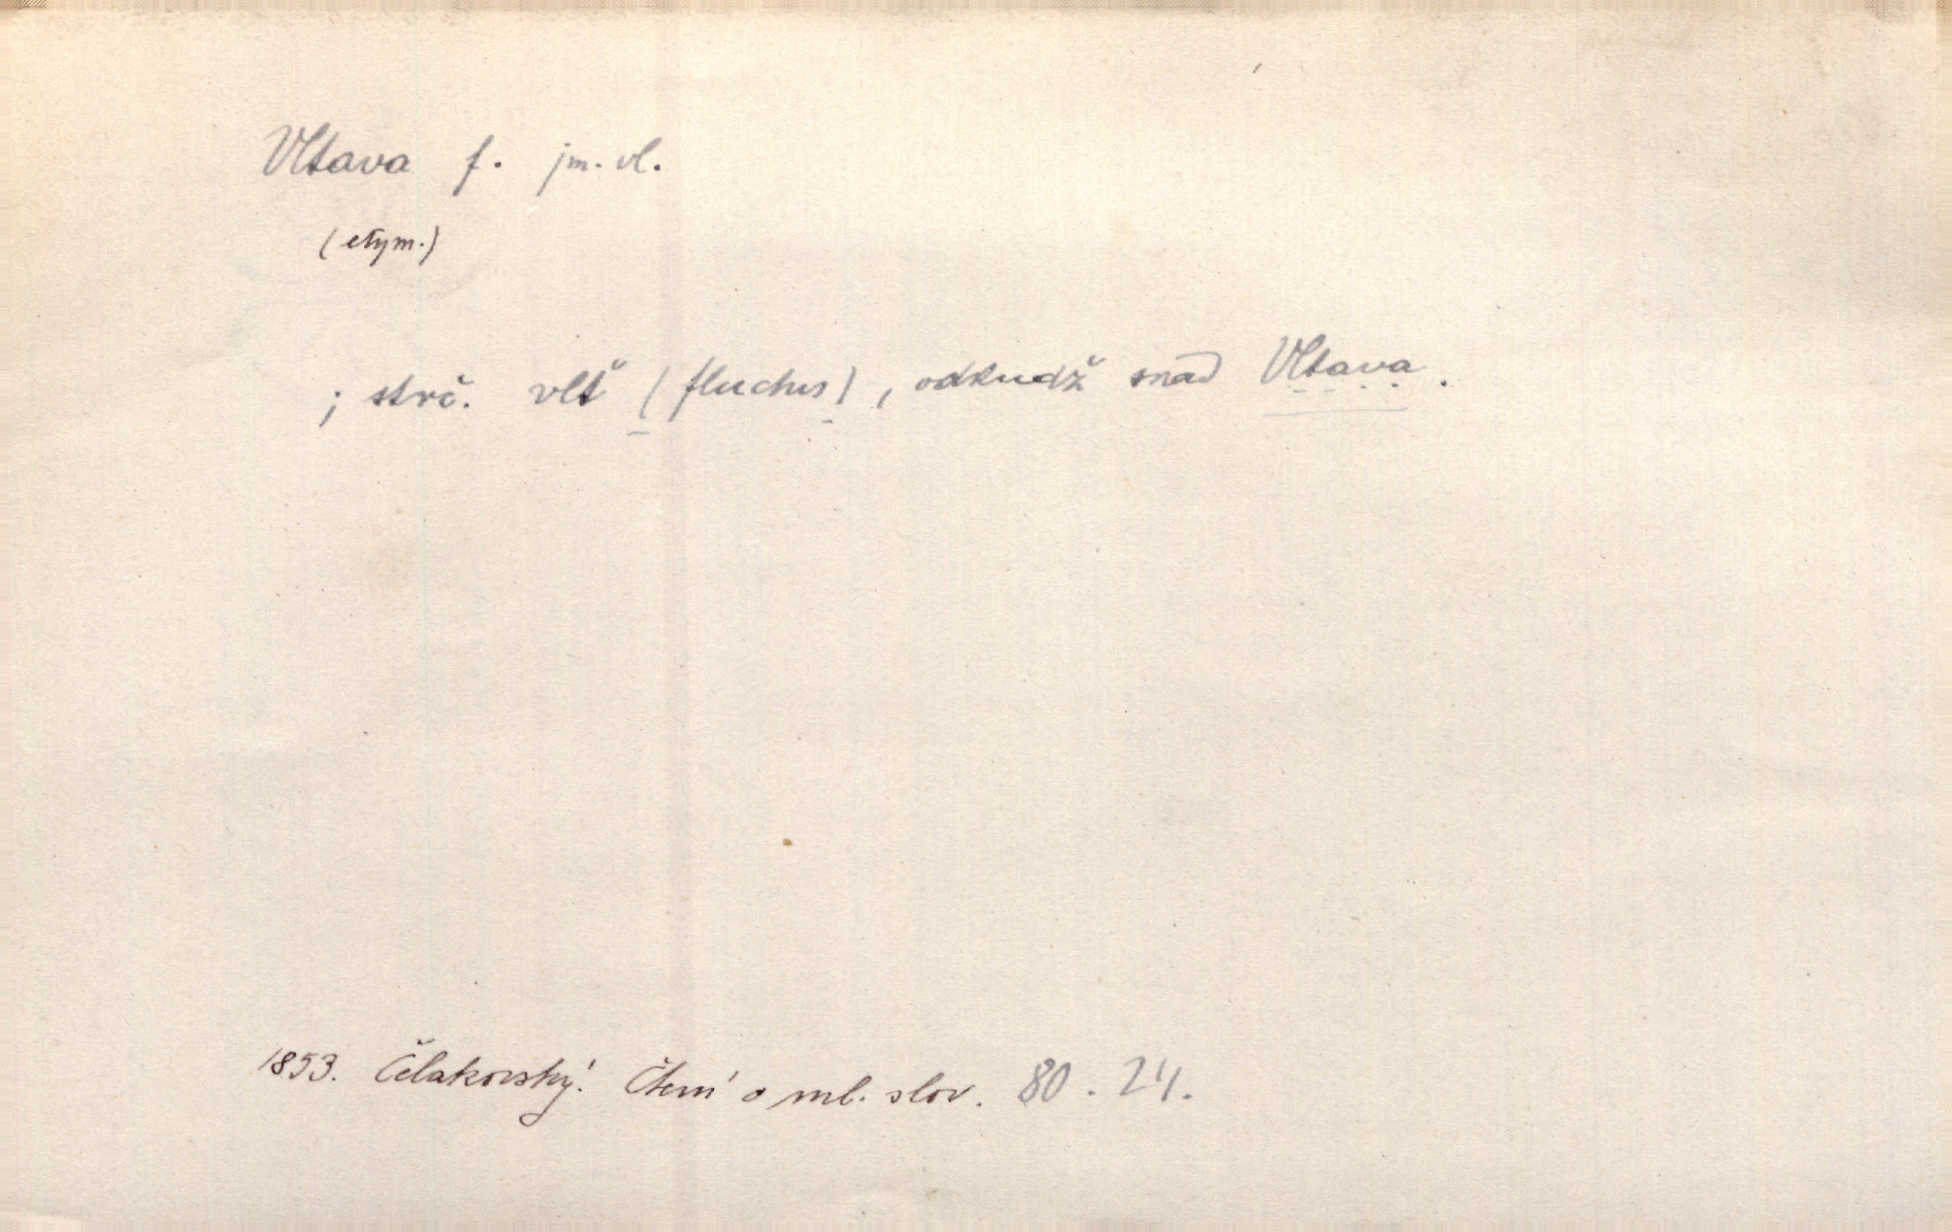 Vltava f. jm. vl.
(etym.)
; strč. vlť (fluctus), odkudž snad Vltava.
1853. Čelakovský. Čtení o ml. slov. 80. 24.